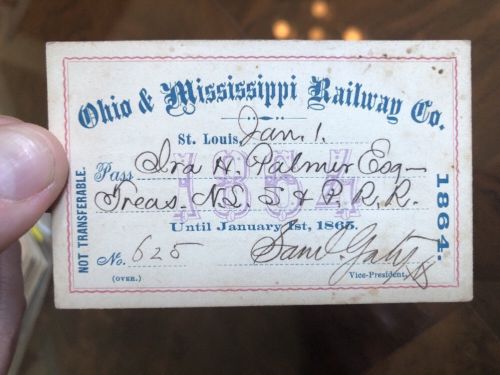 Ohio & Mississippi Railway Co.
St. Louis, Jan. 1.
1864
Pass Ira H. Palmer Esq—
Treas. N.L. S & P. R. R.
Until January 1st, 1865.
No. 625
Saml. Gaty
(OVER.)
Vice-President,
NOT TRANSFERABLE.
1864.